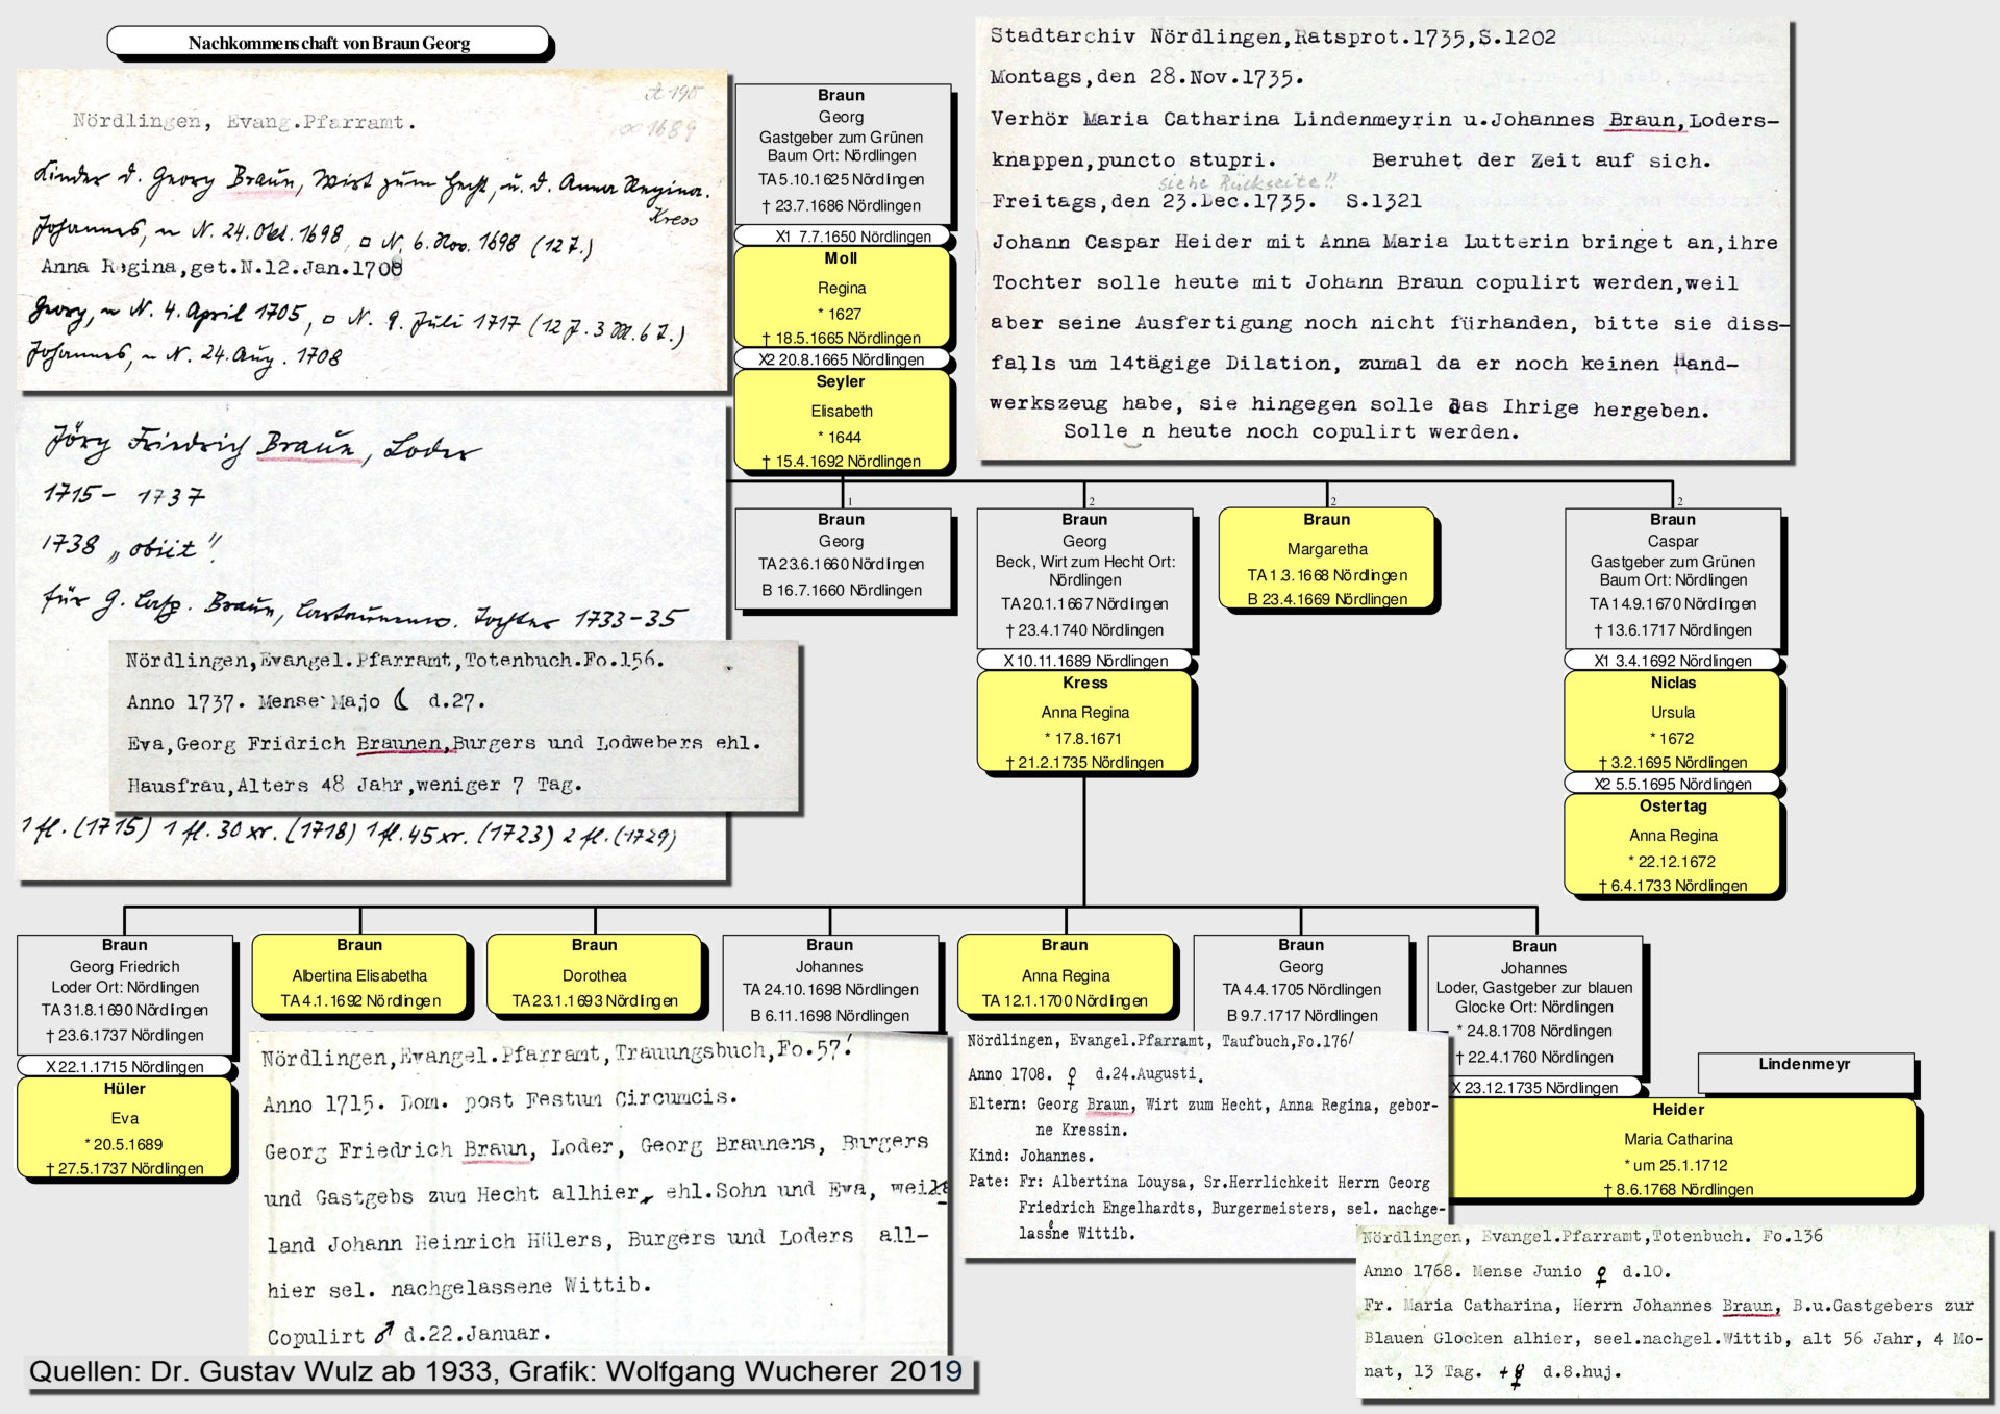 Nachkommenschaft von Braun Georg
Nördlingen, Evang.Pfarramt.
Kinder d. Georg Braun, Wirt zum Hecht, u. d. Anna Regina.
Kress
Johannes, ~ N. 24. Okt. 1698, □ N. 6. Nov. 1698 (12 T.)
Anna Regina,get.N.12.Jan.1700
Georg, ~ N. 4. April 1705, □ N. 9. Juli 1717 (12 J. 3 M. 6 T.)
Johannes, ~ N. 24. Aug. 1708
Jörg Friedrich Braun, Loder
1715 - 1737
1738 „obiit"
für G. Casp. Braun, Tochter 1733-35
Nördlingen,Evangel.Pfarramt,Totenbuch.Fo.156.
Anno 1737. Mense Majo ☾ d.27.
Eva,Georg Fridrich Braunen,Burgers und Lodwebers ehl.
Hausfrau,Alters 48 Jahr,weniger 7 Tag.
1 fl. (1715) 1 fl. 30 xr. (1718) 1 fl. 45 xr. (1723) 2 fl. (1729)
Braun
Georg
Gastgeber zum Grünen
Baum Ort: Nördlingen
TA 5.10.1625 Nördlingen
† 23.7.1686 Nördlingen
X1 7.7.1650 Nördlingen
Moll
Regina
* 1627
† 18.5.1665 Nördlingen
X2 20.8.1665 Nördlingen
Seyler
Elisabeth
* 1644
† 15.4.1692 Nördlingen
Stadtarchiv Nördlingen,Ratsprot.1735,S.1202
Montags,den 28.Nov.1735.
Verhör Maria Catharina Lindenmeyrin u.Johannes Braun,Loders-
knappen,puncto stupri. Beruhet der Zeit auf sich.
siehe Rückseite!!
Freitags,den 23.Dec.1735. S.1321
Johann Caspar Heider mit Anna Maria Lutterin bringet an,ihre
Tochter solle heute mit Johann Braun copulirt werden,weil
aber seine Ausfertigung noch nicht fürhanden, bitte sie diss-
falls um 14tägige Dilation, zumal da er noch keinen Hand-
werkszeug habe, sie hingegen solle das Ihrige hergeben.
Solle n heute noch copulirt werden.
1
Braun
Georg
TA 23.6.1660 Nördlingen
B 16.7.1660 Nördlingen
2
Braun
Georg
Beck, Wirt zum Hecht Ort:
Nördlingen
TA 20.1.1667 Nördlingen
† 23.4.1740 Nördlingen
X 10.11.1689 Nördlingen
Kress
Anna Regina
* 17.8.1671
† 21.2.1735 Nördlingen
2
Braun
Margaretha
TA 1.3.1668 Nördlingen
B 23.4.1669 Nördlingen
2
Braun
Caspar
Gastgeber zum Grünen
Baum Ort: Nördlingen
TA 14.9.1670 Nördlingen
† 13.6.1717 Nördlingen
X1 3.4.1692 Nördlingen
Niclas
Ursula
* 1672
† 3.2.1695 Nördlingen
X2 5.5.1695 Nördlingen
Ostertag
Anna Regina
* 22.12.1672
† 6.4.1733 Nördlingen
Braun
Georg Friedrich
Loder Ort: Nördlingen
TA 31.8.1690 Nördlingen
† 23.6.1737 Nördlingen
X 22.1.1715 Nördlingen
Hüler
Eva
* 20.5.1689
† 27.5.1737 Nördlingen
Braun
Albertina Elisabetha
TA 4.1.1692 Nördlingen
Braun
Dorothea
TA 23.1.1693 Nördlingen
Braun
Johannes
TA 24.10.1698 Nördlingen
B 6.11.1698 Nördlingen
Braun
Anna Regina
TA 12.1.1700 Nördlingen
Braun
Georg
TA 4.4.1705 Nördlingen
B 9.7.1717 Nördlingen
Braun
Johannes
Loder, Gastgeber zur blauen
Glocke Ort: Nördlingen
* 24.8.1708 Nördlingen
† 22.4.1760 Nördlingen
X 23.12.1735 Nördlingen
Lindenmeyr
Heider
Maria Catharina
* um 25.1.1712
† 8.6.1768 Nördlingen
Nördlingen,Evangel.Pfarramt,Trauungsbuch,Fo.57!
Anno 1715. Dom. post Festum Circumcis.
Georg Friedrich Braun, Loder, Georg Braunens, Burgers
und Gastgebs zum Hecht allhier, ehl.Sohn und Eva, weil
land Johann Heinrich Hülers, Burgers und Loders all-
hier sel. nachgelassene Wittib.
Copulirt ♂ d.22.Januar.
Nördlingen, Evangel.Pfarramt, Taufbuch,Fo.176/
Anno 1708. ♀ d.24.Augusti.
Eltern: Georg Braun, Wirt zum Hecht, Anna Regina, gebor-
ne Kressin.
Kind: Johannes.
Pate: Fr: Albertina Louysa, Sr.Herrlichkeit Herrn Georg
Friedrich Engelhardts, Burgermeisters, sel. nachge-
lassne Wittib.
Nördlingen, Evangel.Pfarramt,Totenbuch. Fo.136
Anno 1768. Mense Junio ♀ d.10.
Fr. Maria Catharina, Herrn Johannes Braun, B.u.Gastgebers zur
Blauen Glocken alhier, seel.nachgel.Wittib, alt 56 Jahr, 4 Mo-
nat, 13 Tag. +☿ d.8.huj.
Quellen: Dr. Gustav Wulz ab 1933, Grafik: Wolfgang Wucherer 2019